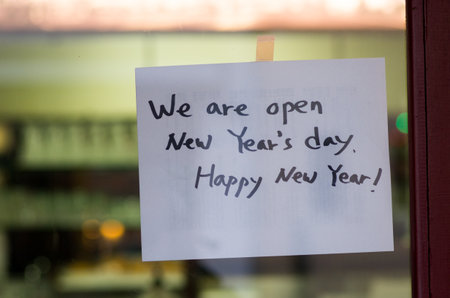 We are open
New Year's day.
Happy New Year!